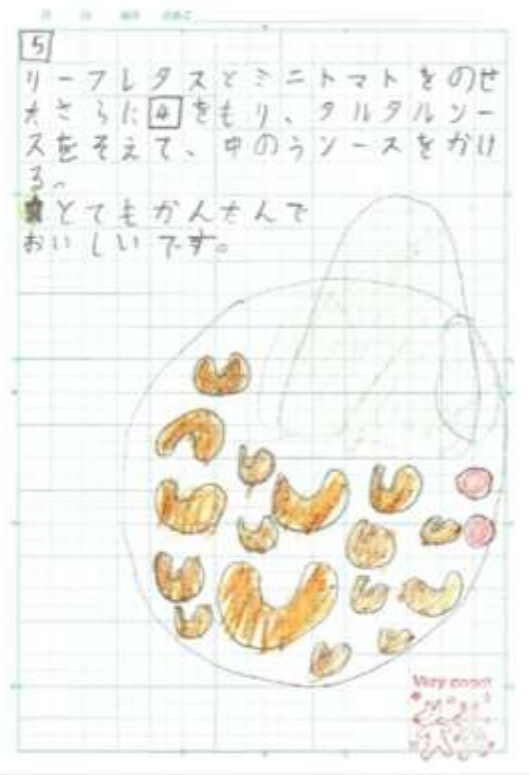 5
リーフレタスとミニトマトをのせ
たさらに4をもり、タルタルソー
スをそえて、中のうソースをかけ
る。
★とてもかんたんで
おいしいです。
Very good!